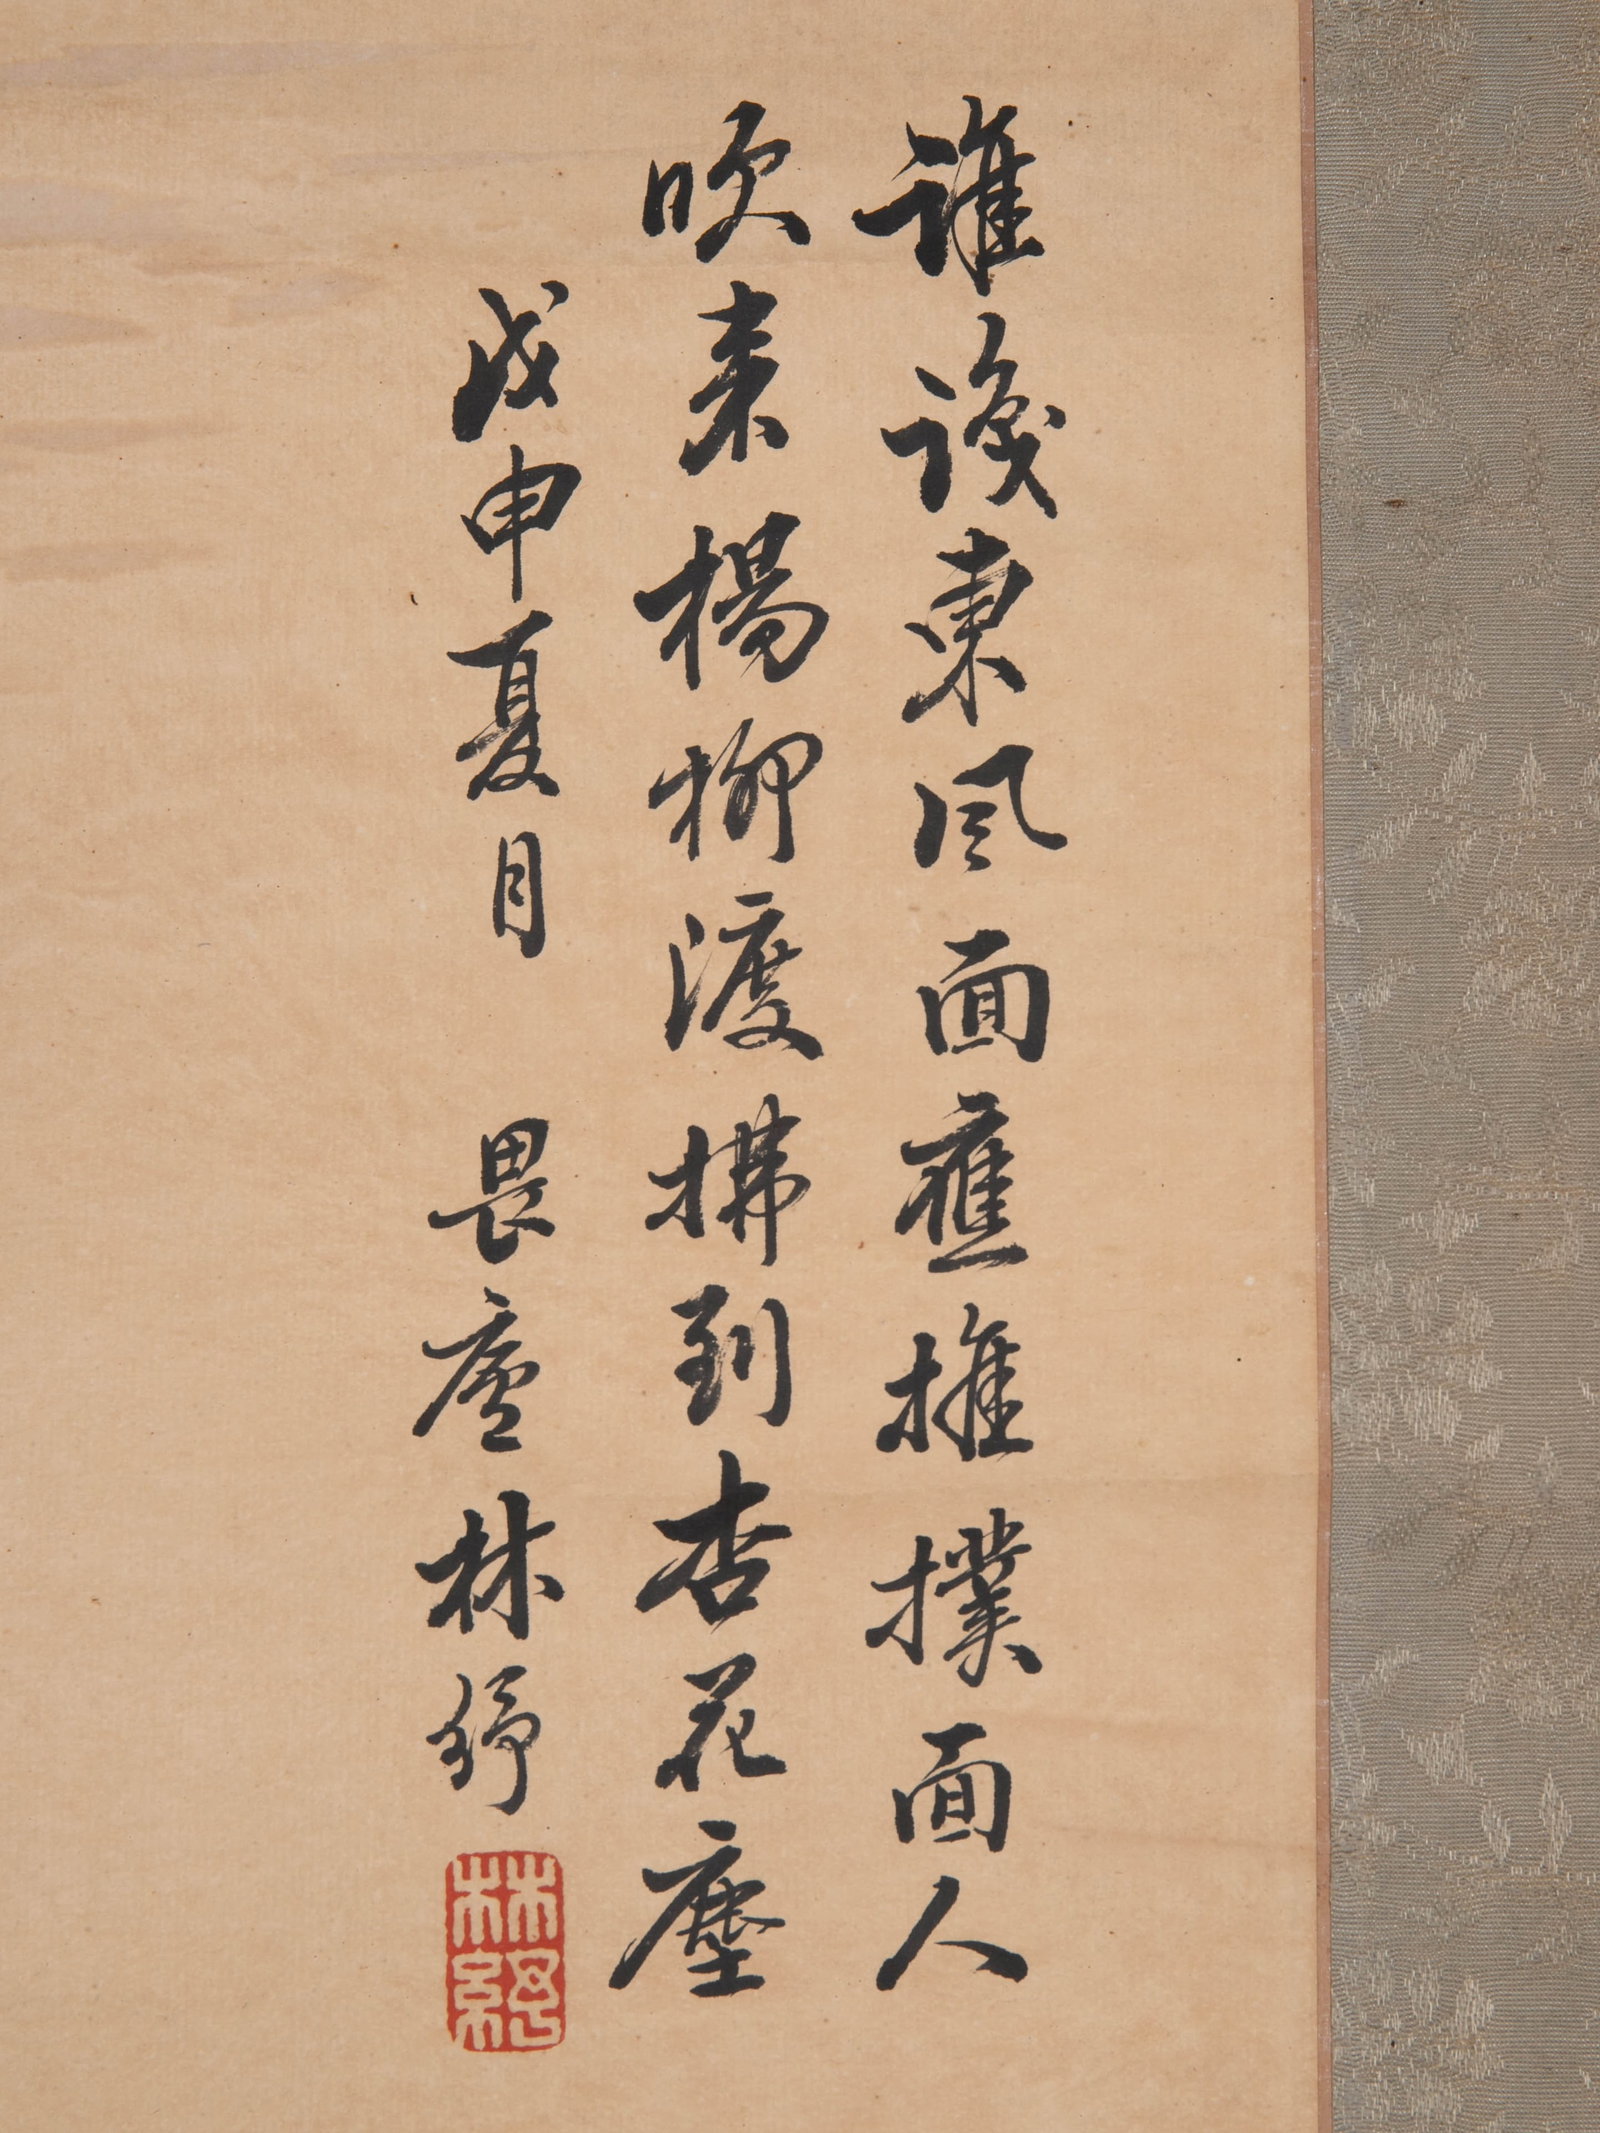 誰識東風面應推撲面人
吹來楊柳渡拂到杏花塵
戊申夏月 畏廬林紓
林紓